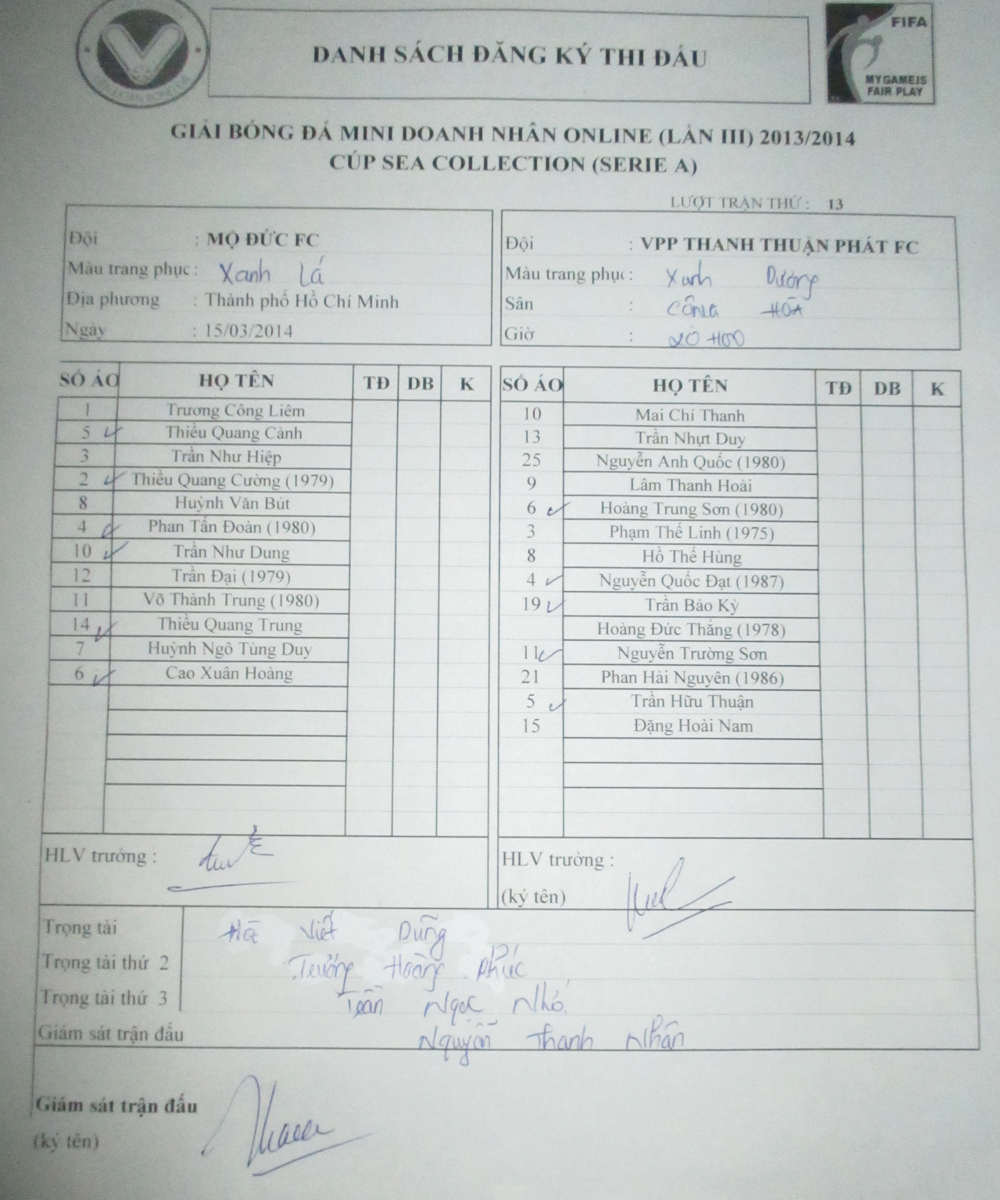 DANH SÁCH ĐĂNG KÝ THI ĐẤU
FIFA
MY GAME IS
FAIR PLAY
GIẢI BÓNG ĐÁ MINI DOANH NHÂN ONLINE (LẦN III) 2013/2014
CÚP SEA COLLECTION (SERIE A)
LƯỢT TRẬN THỨ : 13
Đội : MỘ ĐỨC FC
Màu trang phục : Xanh Lá
Địa phương : Thành phố Hồ Chí Minh
Ngày : 15/03/2014
Đội : VPP THANH THUẬN PHÁT FC
Màu trang phục : Xanh Dương
Sân : CỘNG HÒA
Giờ : 20 H00
SỐ ÁO HỌ TÊN TĐ DB K
1 Trương Công Liêm
5 Thiều Quang Cảnh
3 Trần Như Hiệp
2 Thiều Quang Cường (1979)
8 Huỳnh Văn Bút
4 Phan Tấn Đoàn (1980)
10 Trần Như Dung
12 Trần Đại (1979)
11 Võ Thành Trung (1980)
14 Thiều Quang Trung
7 Huỳnh Ngô Tùng Duy
6 Cao Xuân Hoàng
SỐ ÁO HỌ TÊN TĐ DB K
10 Mai Chí Thanh
13 Trần Nhựt Duy
25 Nguyễn Anh Quốc (1980)
9 Lâm Thanh Hoài
6 Hoàng Trung Sơn (1980)
3 Phạm Thế Linh (1975)
8 Hồ Thế Hùng
4 Nguyễn Quốc Đạt (1987)
19 Trần Bảo Kỳ
Hoàng Đức Thắng (1978)
11 Nguyễn Trường Sơn
21 Phan Hải Nguyên (1986)
5 Trần Hữu Thuận
15 Đặng Hoài Nam
HLV trưởng :
HLV trưởng :
(ký tên)
Trọng tài Hà Viết Dũng
Trọng tài thứ 2 Trương Hoàng Phúc
Trọng tài thứ 3 Trần Ngọc Nhớ
Giám sát trận đấu Nguyễn Thanh Nhân
Giám sát trận đấu
(ký tên)